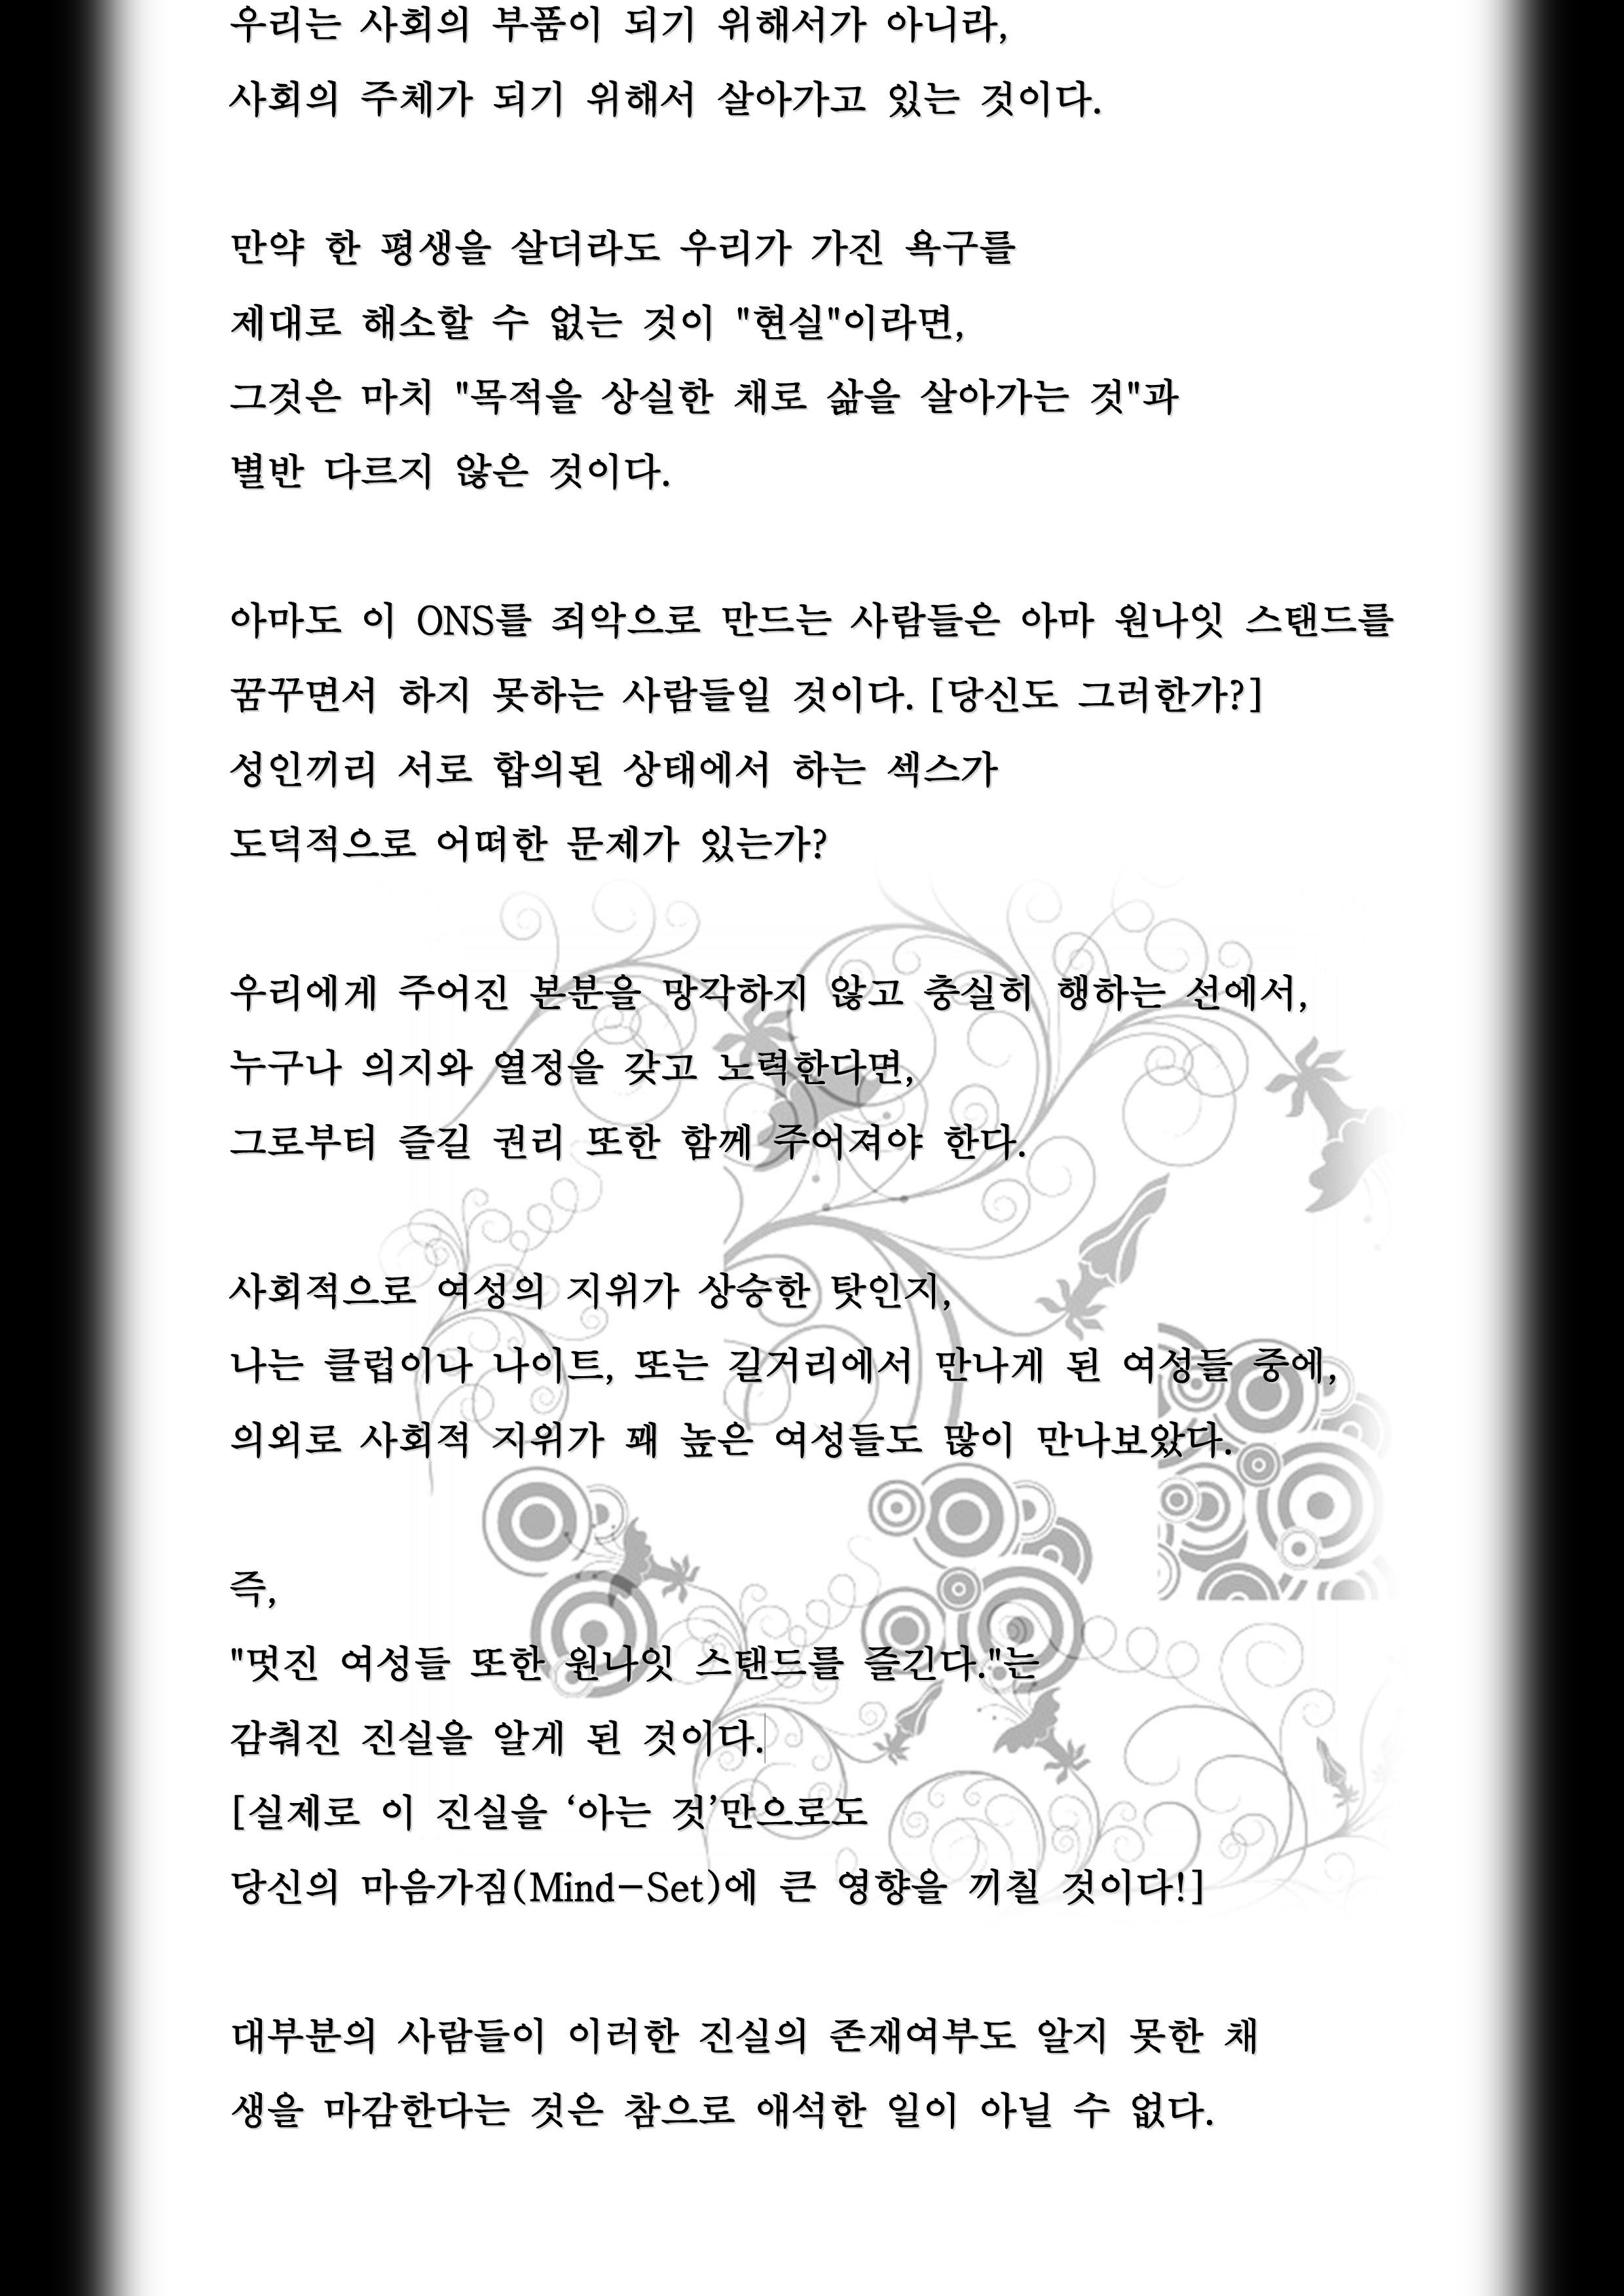 우리는 사회의 부품이 되기 위해서가 아니라,
사회의 주체가 되기 위해서 살아가고 있는 것이다.
만약 한 평생을 살더라도 우리가 가진 욕구를
제대로 해소할 수 없는 것이 "현실"이라면,
그것은 마치 "목적을 상실한 채로 삶을 살아가는 것"과
별반 다르지 않은 것이다.
아마도 이 ONS를 죄악으로 만드는 사람들은 아마 원나잇 스탠드를
꿈꾸면서 하지 못하는 사람들일 것이다. [당신도 그러한가?]
성인끼리 서로 합의된 상태에서 하는 섹스가
도덕적으로 어떠한 문제가 있는가?
우리에게 주어진 본분을 망각하지 않고 충실히 행하는 선에서,
누구나 의지와 열정을 갖고 노력한다면,
그로부터 즐길 권리 또한 함께 주어져야 한다.
사회적으로 여성의 지위가 상승한 탓인지,
나는 클럽이나 나이트, 또는 길거리에서 만나게 된 여성들 중에,
의외로 사회적 지위가 꽤 높은 여성들도 많이 만나보았다.
즉,
"멋진 여성들 또한 원나잇 스탠드를 즐긴다."는
감춰진 진실을 알게 된 것이다.
[실제로 이 진실을 ‘아는 것’만으로도
당신의 마음가짐(Mind-Set)에 큰 영향을 끼칠 것이다!]
대부분의 사람들이 이러한 진실의 존재여부도 알지 못한 채
생을 마감한다는 것은 참으로 애석한 일이 아닐 수 없다.